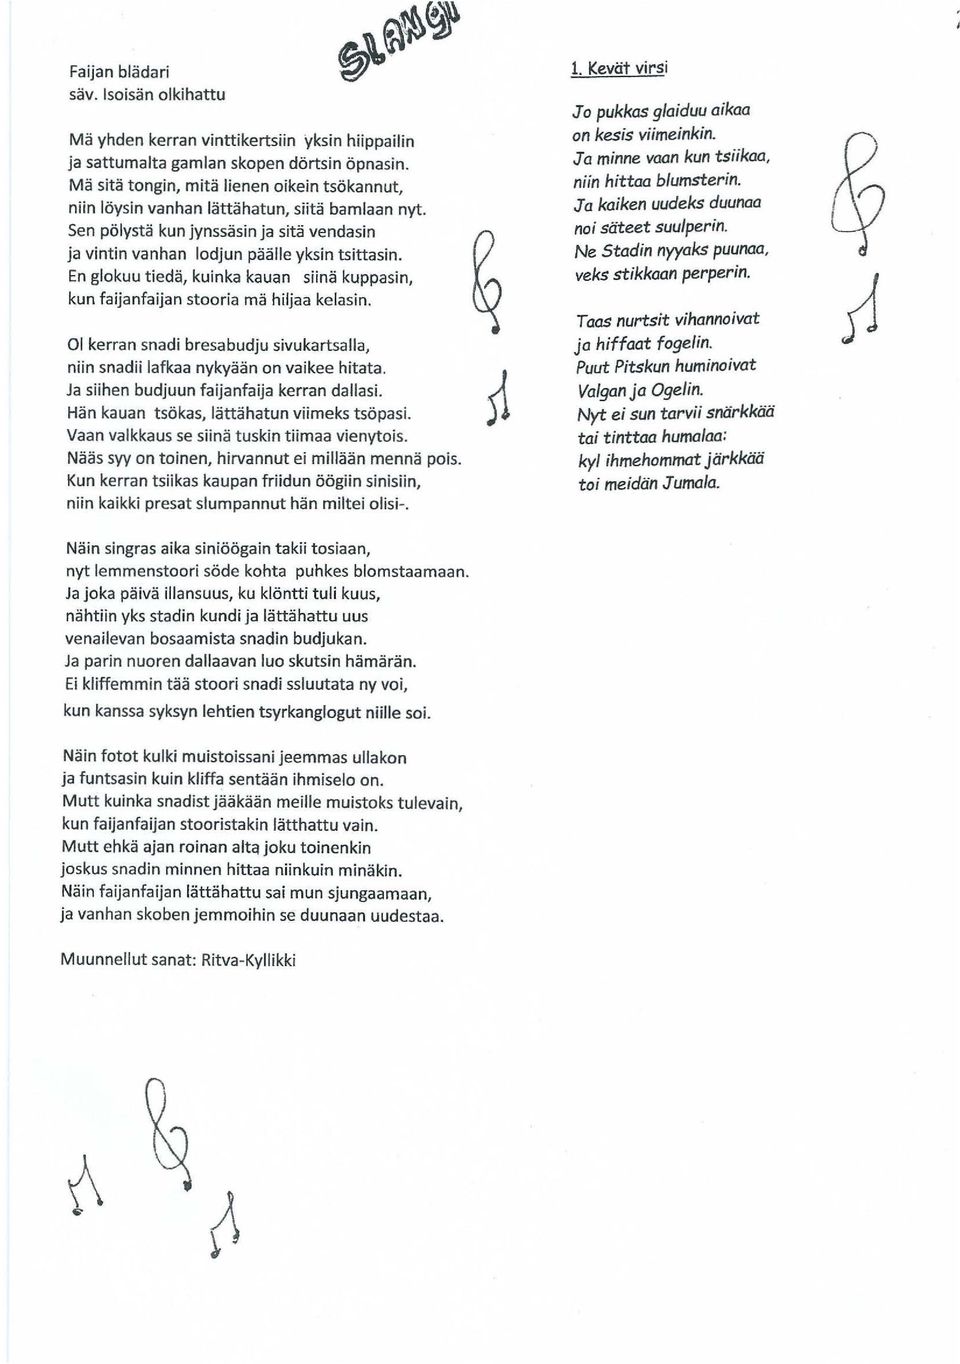 SLANGI
Faijan blädari
säv. Isoisän olkihattu
Mä yhden kerran vinttikertsiin yksin hiippailin
ja sattumalta gamlan skopen dörtsin öpnasin.
Mä sitä tongin, mitä lienen oikein tsökannut,
niin löysin vanhan lättähatun, siitä bamlaan nyt.
Sen pölystä kun jynssäsin ja sitä vendasin
ja vintin vanhan lodjun päälle yksin tsittasin.
En glokuu tiedä, kuinka kauan siinä kuppasin,
kun faijanfaijan stooria mä hiljaa kelasin.
Ol kerran snadi bresabudju sivukartsalla,
niin snadii lafkaa nykyään on vaikee hitata.
Ja siihen budjuun faijanfaija kerran dallasi.
Hän kauan tsökas, lättähatun viimeks tsöpasi.
Vaan valkkaus se siinä tuskin tiimaa vienytois.
Nääs syy on toinen, hirvannut ei millään mennä pois.
Kun kerran tsiikas kaupan friidun öögiin sinisiin,
niin kaikki presat slumpannut hän miltei olisi-.
Näin singras aika siniöögain takii tosiaan,
nyt lemmenstoori söde kohta puhkes blomstaamaan.
Ja joka päivä illansuus, ku klöntti tuli kuus,
nähtiin yks stadin kundi ja lättähattu uus
venailevan bosaamista snadin budjukan.
Ja parin nuoren dallaavan luo skutsin hämärän.
Ei kliffemmin tää stoori snadi ssluutata ny voi,
kun kanssa syksyn lehtien tsyrkanglogut niille soi.
Näin fotot kulki muistoissani jeemmas ullakon
ja funtsasin kuin kliffa sentään ihmiselo on.
Mutt kuinka snadist jääkään meille muistoks tulevain,
kun faijanfaijan stooristakin lätthattu vain.
Mutt ehkä ajan roinan alta joku toinenkin
joskus snadin minnen hittaa niinkuin minäkin.
Näin faijanfaijan lättähattu sai mun sjungaamaan,
ja vanhan skoben jemmoihin se duunaan uudestaa.
Muunnellut sanat: Ritva-Kyllikki
1. Kevät virsi
Jo pukkas glaiduu aikaa
on kesis viimeinkin.
Ja minne vaan kun tsiikaa,
niin hittaa blumsterin.
Ja kaiken uudeks duunaa
noi säteet suulperin.
Ne Stadin nyyaks puunaa,
veks stikkaan perperin.
Taas nurtsit vihannoivat
ja hiffaat fogelin.
Puut Pitskun huminoivat
Valgan ja Ogelin.
Nyt ei sun tarvii snärkkää
tai tinttaa humalaa:
kyl ihmehommat järkkää
toi meidän Jumala.